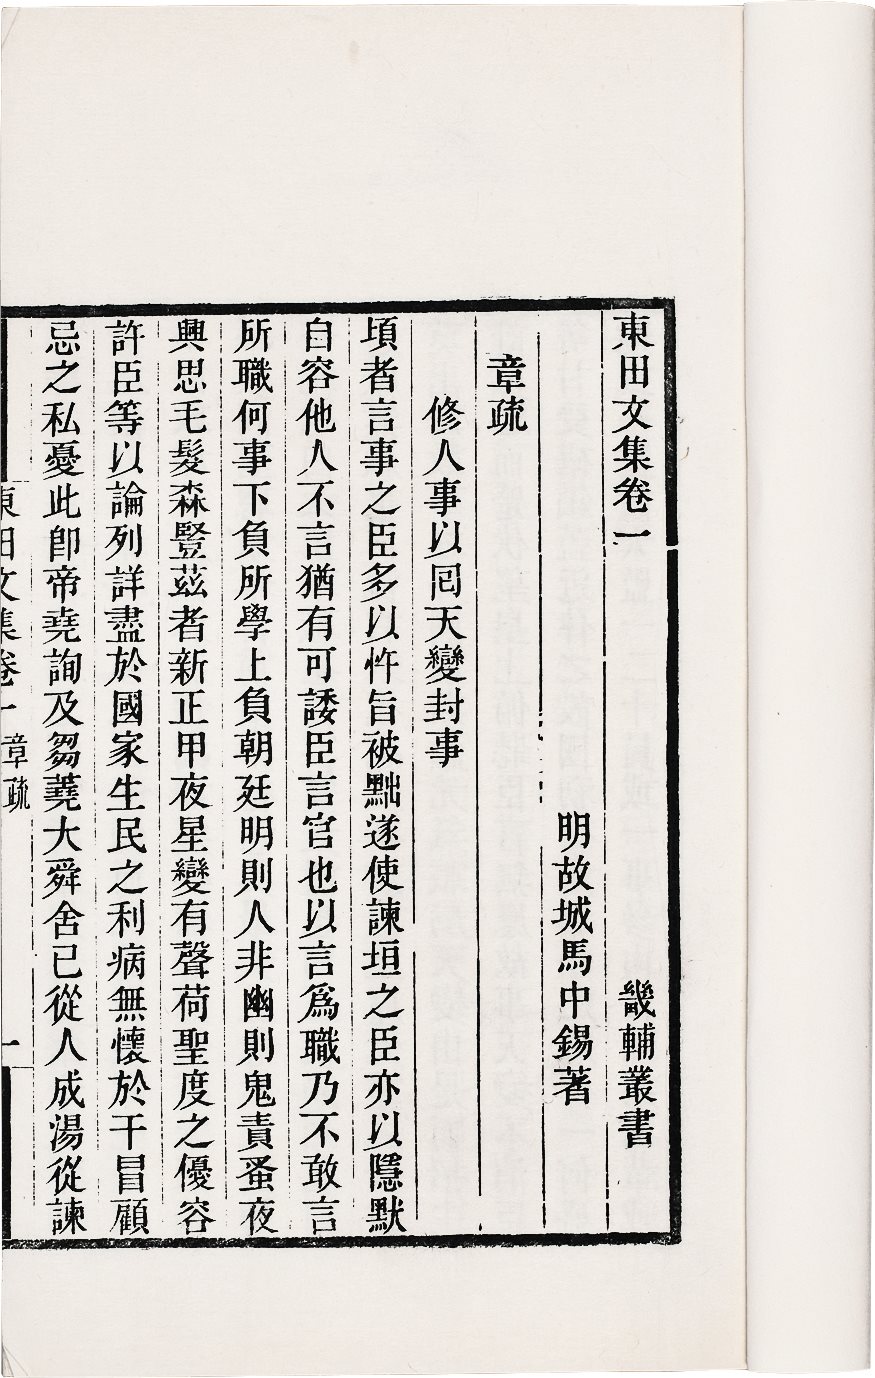 東田文集卷一
畿輔叢書
明故城馬中錫著
章疏
修人事以囘天變封事
頃者言事之臣多以忤旨被黜遂使諫垣之臣亦以隱默
自容他人不言猶有可諉臣言官也以言爲職乃不敢言
所職何事下負所學上負朝廷明則人非幽則鬼責蚤夜
興思毛髮森豎茲者新正甲夜星變有聲荷聖度之優容
許臣等以論列詳盡於國家生民之利病無懷於干冒顧
忌之私憂此卽帝堯詢及芻蕘大舜舍已從人成湯從諫
東田文集卷一
章疏
一